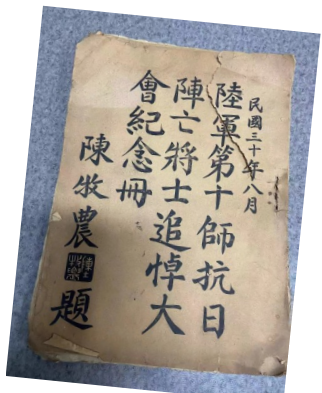 民國三十年八月
陸軍第十師抗日
陣亡將士追悼大
會紀念冊
陳牧農題